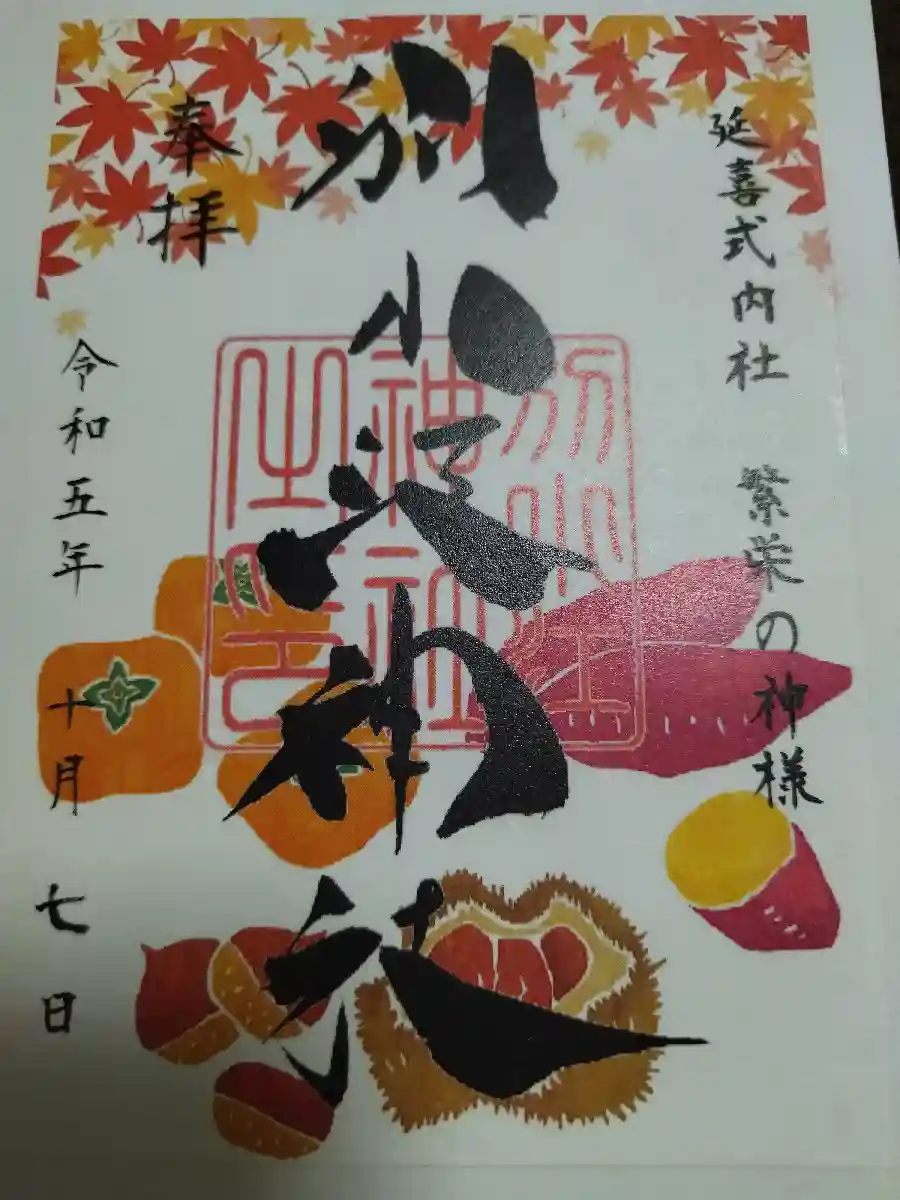 延喜式内社 繁栄の神様
別小江神社
別小江
神社
之印
奉拝
令和五年 十月 七日